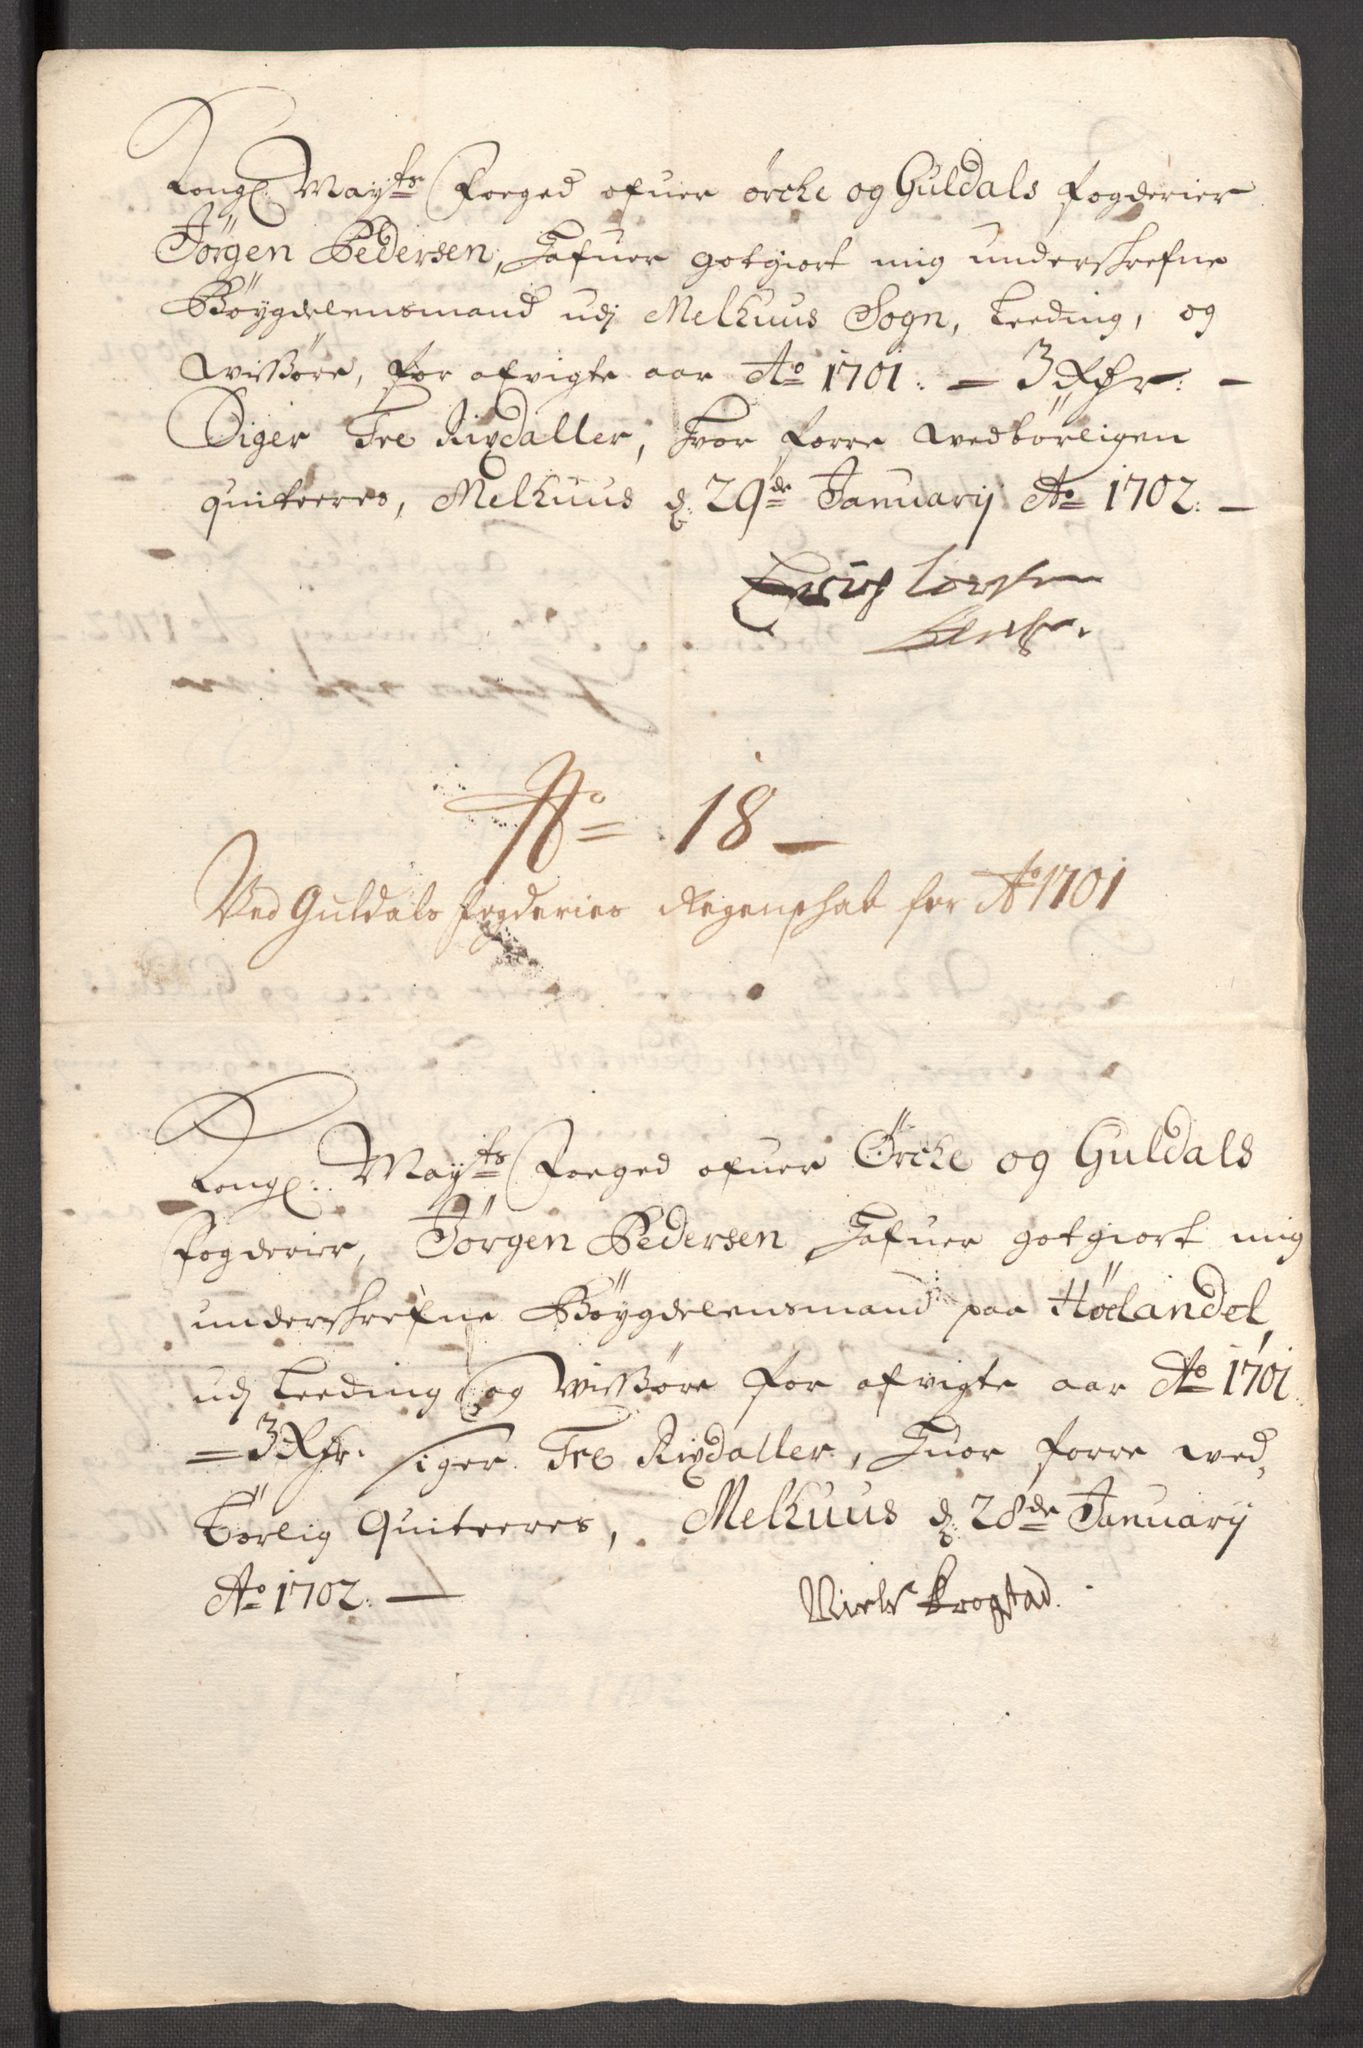 Kongl: Mayts Foeged ofuer örcke og Guldals fogderier
Jörgen Pedersen, hafuer gotgiort mig underskrefne
Böygdelensmand udj Melhuus Sogn, Leeding, og
Wissøre, for afvigte aar Ao 1701. — 3 Rdr: —
Siger Tre Rixdaller, hvor forre wedbørligen
quiteeres, Melhuus d: 29de Januarij Ao 1702. —
Erich
No 18 —
Ved Guldals fogderies Regenskab for Ao 1701
Kongl: Mayts Foeged ofuer Örcke og Guldals
fogderier, Jörgen Pedersen hafuer gotgiort mig
underskrefne Böygdelensmand paa Hølandet,
udj Leeding og Wissøre for afvigte aar Ao 1701.
— 3 Rdr. siger Tre Rixdaller, huor forre wed,
börlig Quiteeres, Melhuus d: 28de Januarij
Ao 1702. —
Niels Krogstad.